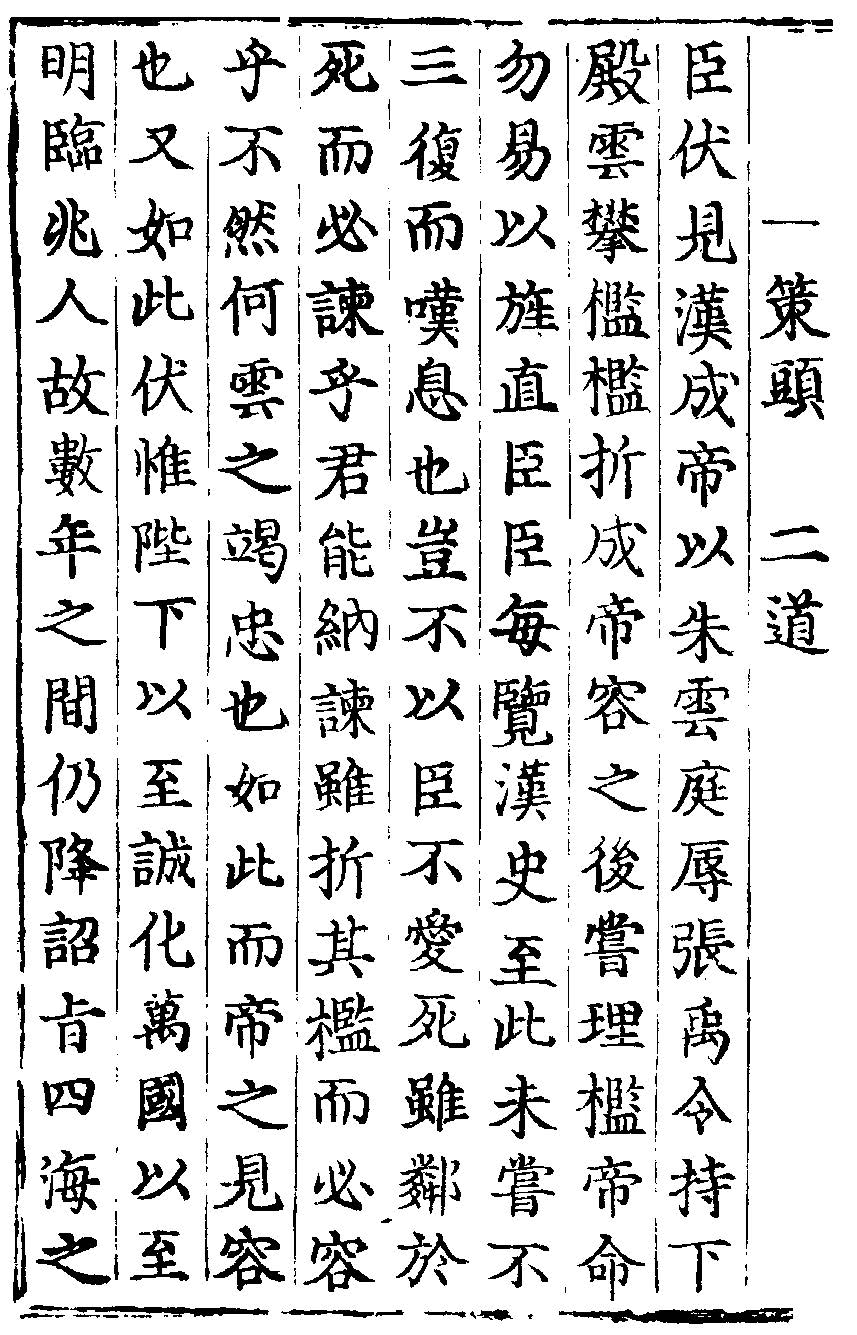 一策頭 二道
臣伏見漢成帝以朱雲庭辱張禹令持下
殿雲攀檻檻折成帝容之後嘗理檻帝命
勿易以旌直臣臣每覽漢史至此未嘗不
三復而嘆息也豈不以臣不愛死雖鄰於
死而必諫乎君能納諫雖折其檻而必容
乎不然何雲之竭忠也如此而帝之見容
也又如此伏惟陛下以至誠化萬國以至
明臨兆人故數年之間仍降詔旨四海之